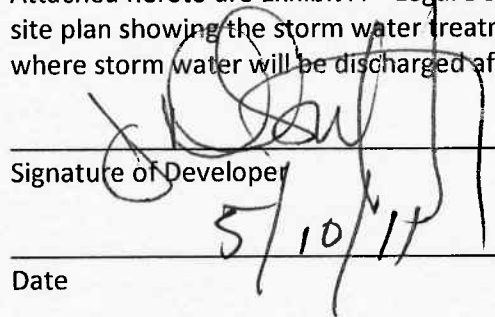 site plan showing the storm water treatm
where storm water will be discharged af
Signature of Developer
5/10/11
Date